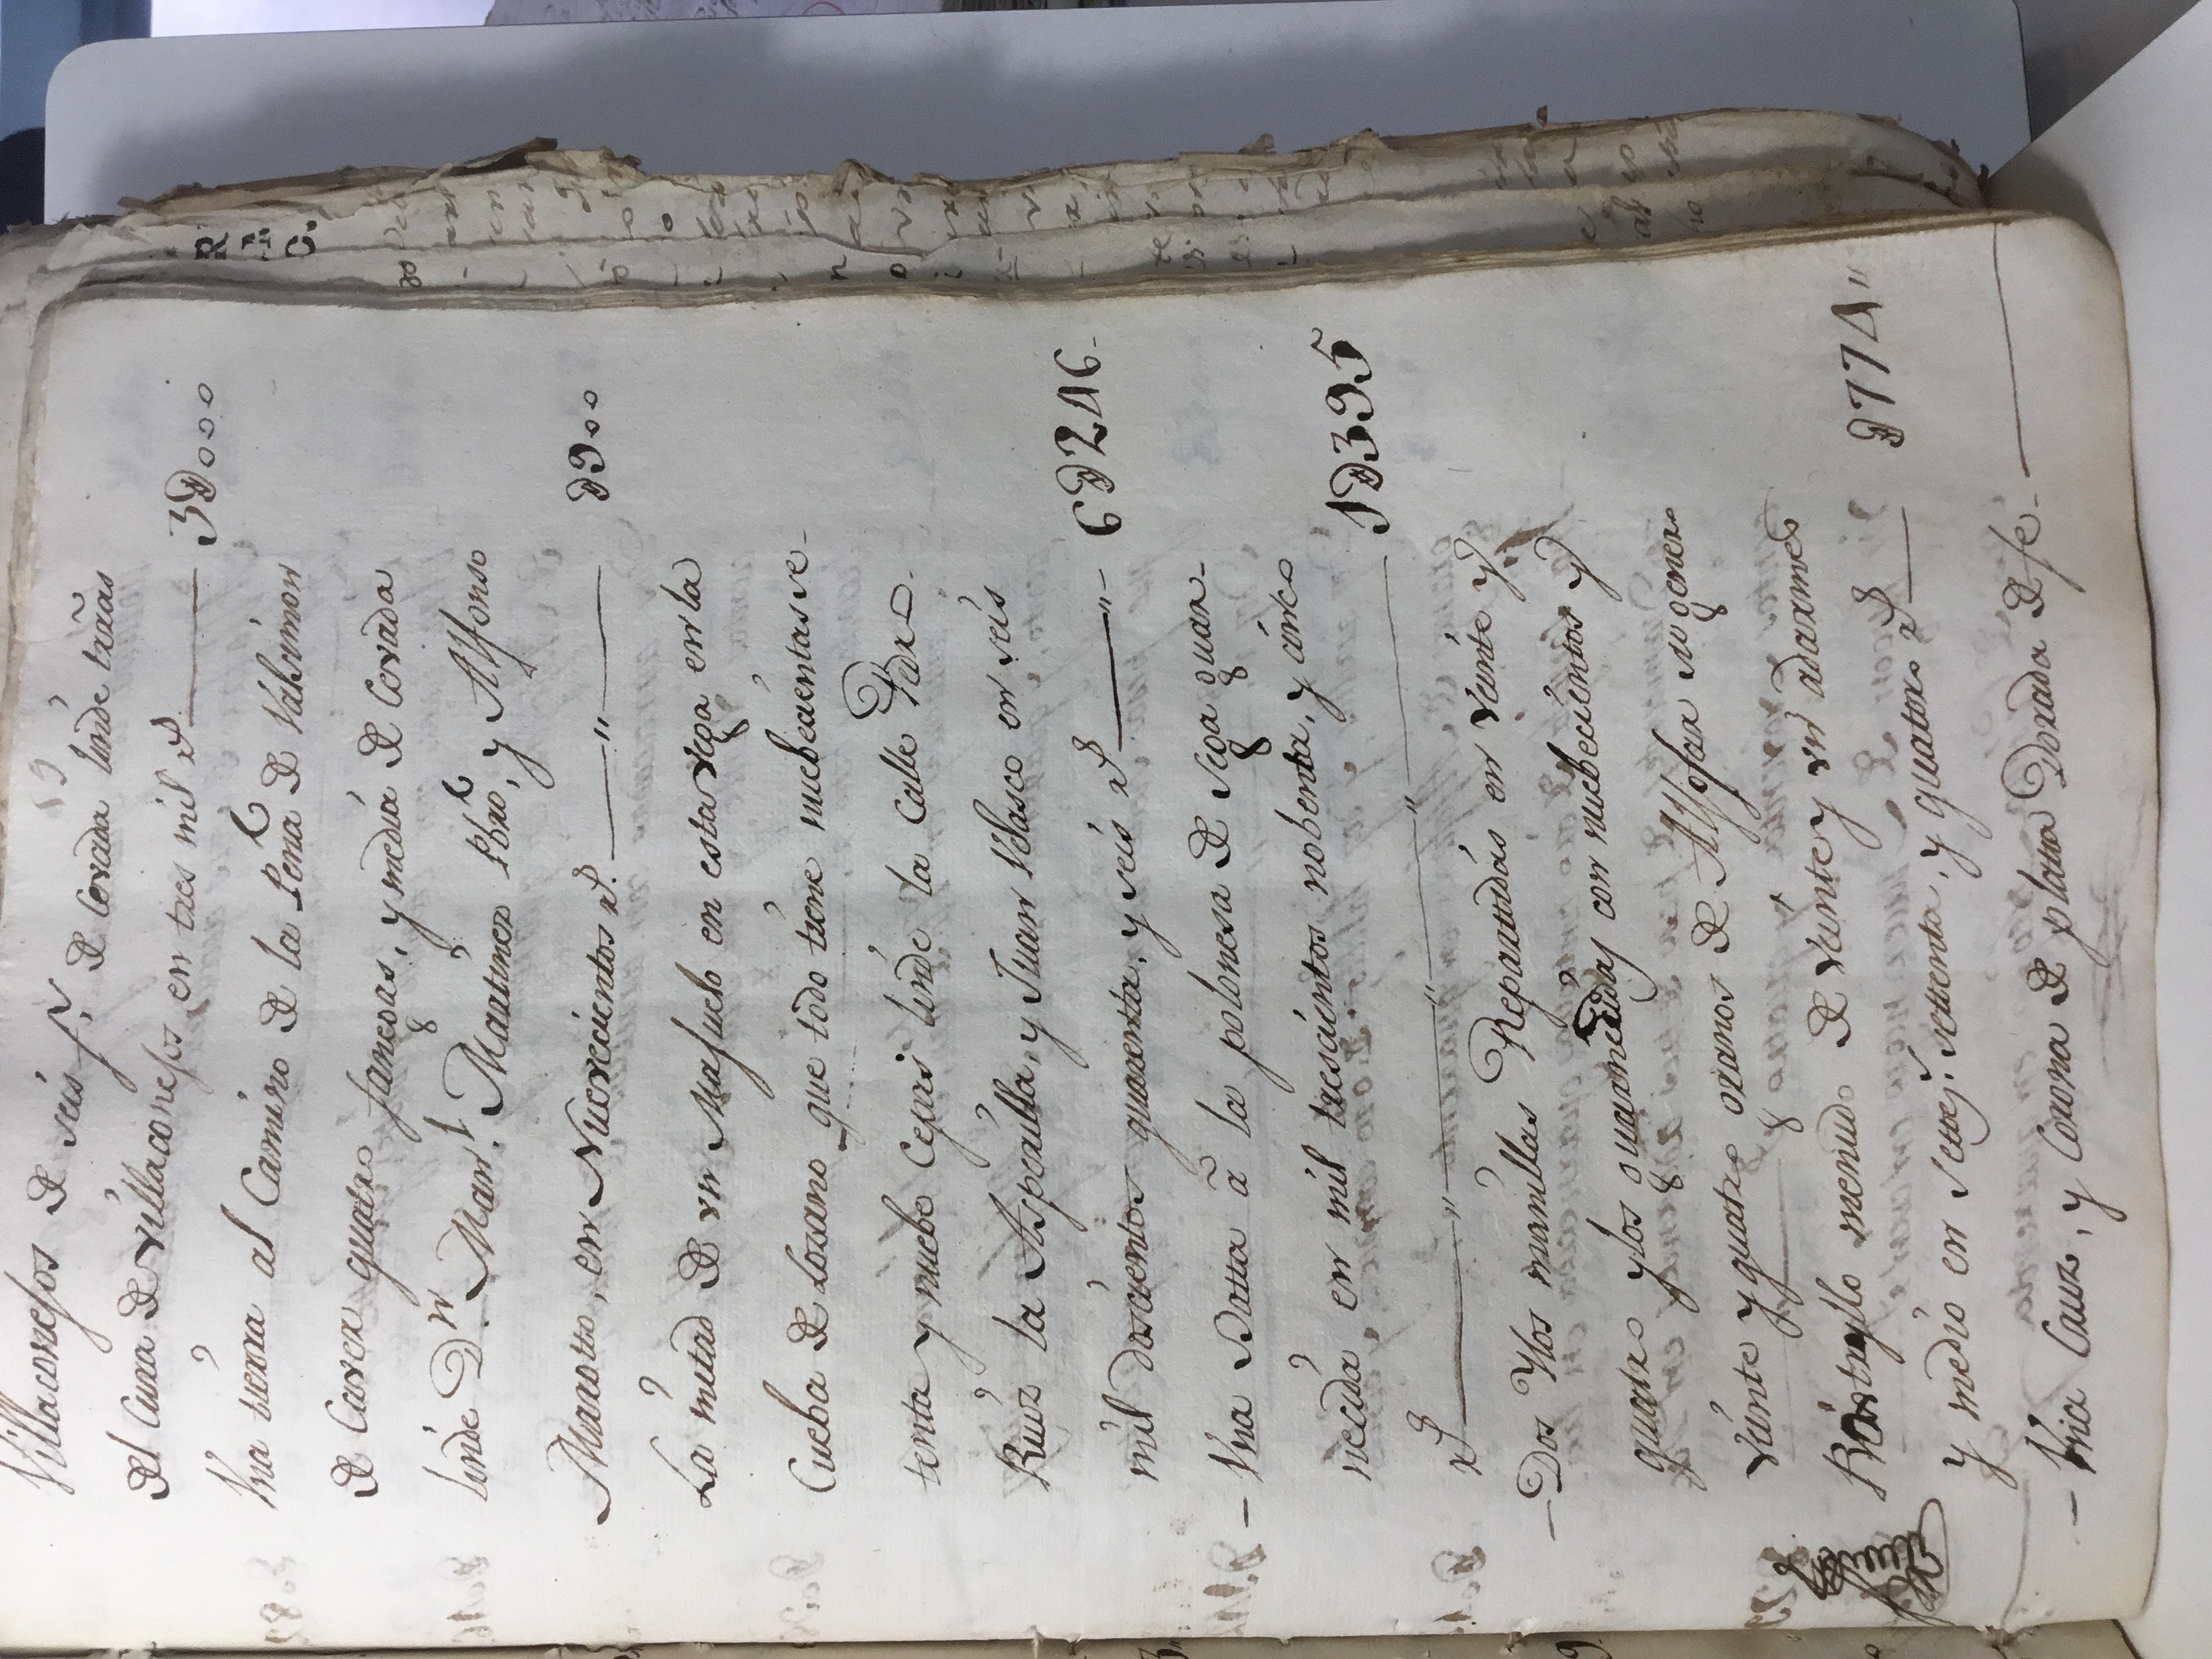 Villaconejos de seis f.s de Cevada linde tras
del Cura de Villaconejos en tres mil rs. 3D000
Vna tierra al Camino de la Peña de Valximon
de Caver quatro fanegas, y media de Cevada
linde Dn. Manl. Martinez Pbro, y Alfonso
Maroto, en Nuevecientos rs. D900
La mitad de vn Majuelo en esta vega en la
Cueba de Lozano que todo tiene nuebecientas se-
tenta y nuebe Cepas linde la Calle Padre
Ruiz la Asperilla, y Juan Velasco en seis
mil doscientos quarenta, y seis rs. 6D246
Vna Batta â la polonesa de Saga guar-
necida en mil trescientos nobenta, y cinco
rs. 1D395
Dos Ylos manillas Repartidas en veinte y
quatro ylos guarnecidas con nuebecientos y
veinte y quatro granos de Aljofar su genero
Rostryllo menudo de veinte y vn adarmes
y medio en settez. settenta, y quatro rs. D774
Vna Cruz, y Corona de plata Dorada de fe-